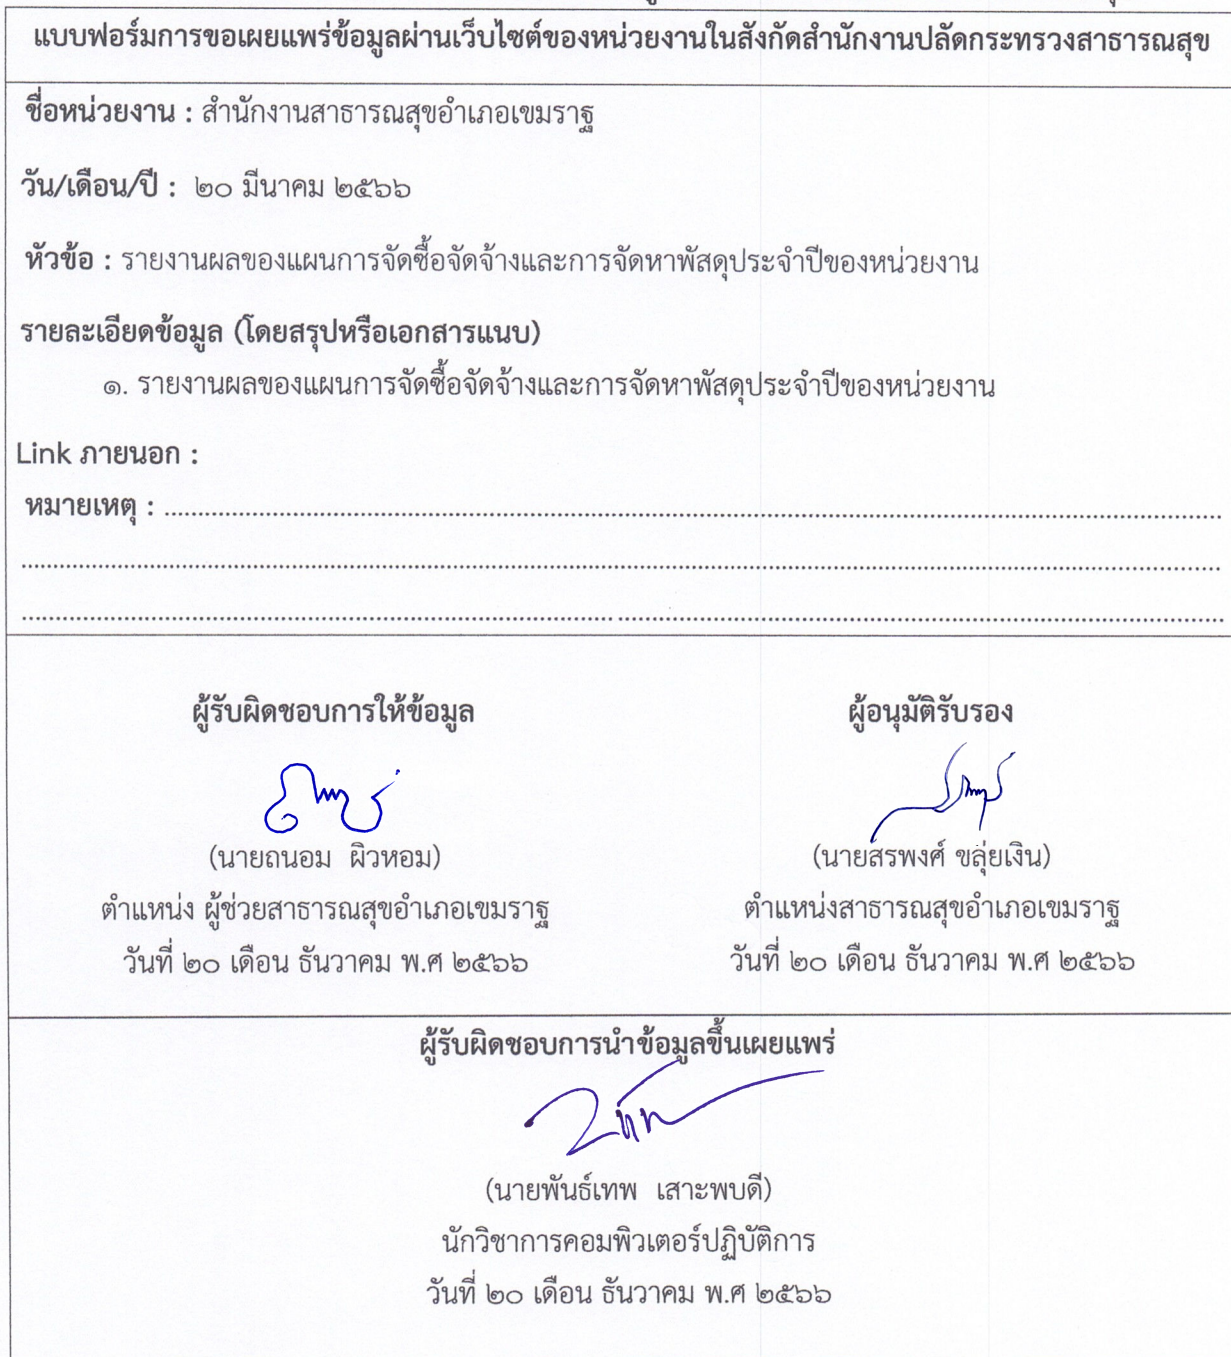 แบบฟอร์มการขอเผยแพร่ข้อมูลผ่านเว็บไซต์ของหน่วยงานในสังกัดสำนักงานปลัดกระทรวงสาธารณสุข
ชื่อหน่วยงาน : สำนักงานสาธารณสุขอำเภอเขมราฐ
วัน/เดือน/ปี : ๒๐ มีนาคม ๒๕๖๖
หัวข้อ : รายงานผลของแผนการจัดซื้อจัดจ้างและการจัดหาพัสดุประจำปีของหน่วยงาน
รายละเอียดข้อมูล (โดยสรุปหรือเอกสารแนบ)
๑. รายงานผลของแผนการจัดซื้อจัดจ้างและการจัดหาพัสดุประจำปีของหน่วยงาน
Link ภายนอก :
หมายเหตุ : ........................................................................................................................
........................................................................................................................
........................................................................................................................
ผู้รับผิดชอบการให้ข้อมูล ผู้อนุมัติรับรอง
(นายถนอม ผิวหอม) (นายสรพงศ์ ขลุ่ยเงิน)
ตำแหน่ง ผู้ช่วยสาธารณสุขอำเภอเขมราฐ ตำแหน่งสาธารณสุขอำเภอเขมราฐ
วันที่ ๒๐ เดือน ธันวาคม พ.ศ ๒๕๖๖ วันที่ ๒๐ เดือน ธันวาคม พ.ศ ๒๕๖๖
ผู้รับผิดชอบการนำข้อมูลขึ้นเผยแพร่
(นายพันธ์เทพ เสาะพบดี)
นักวิชาการคอมพิวเตอร์ปฏิบัติการ
วันที่ ๒๐ เดือน ธันวาคม พ.ศ ๒๕๖๖